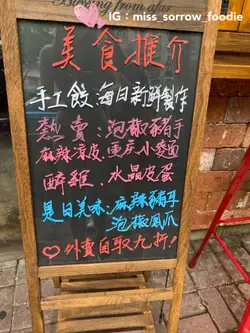 IG : miss_sorrow_foodie
from afar
美食推介
手工餃、每日新鮮製作
熱賣：泡椒豬手
麻辣魚皮、重慶小麵
醉雞、水晶皮蛋
是日美味：麻辣豬耳
泡椒鳳爪
外賣自取九折！